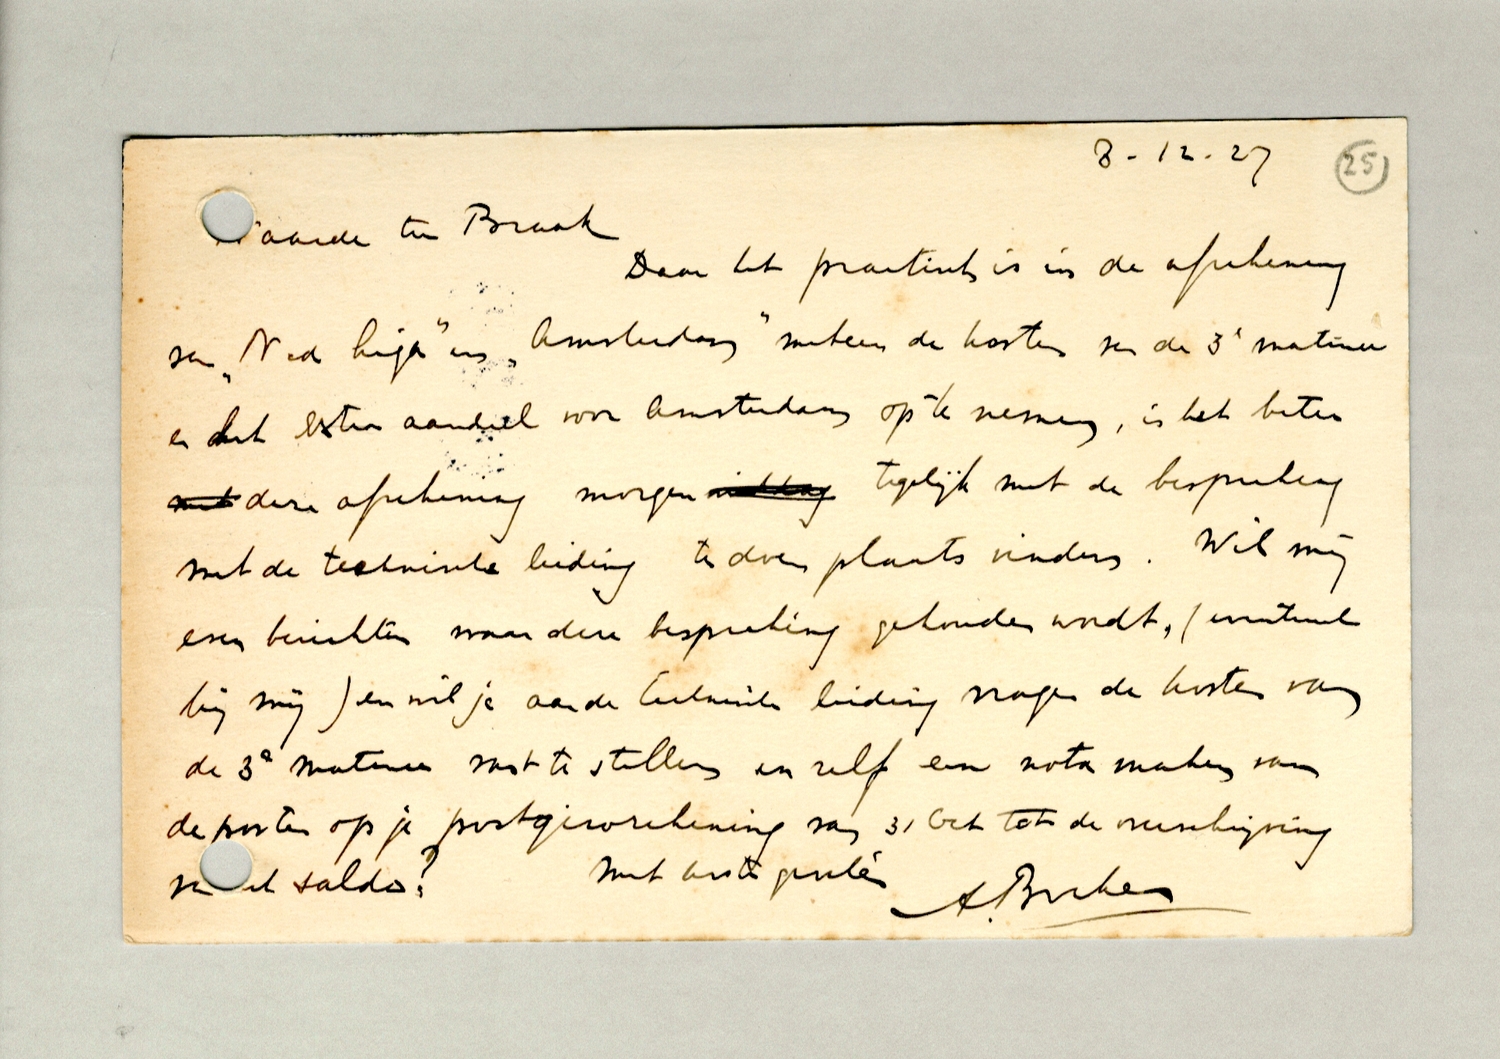 8-12-27
25
Waarde ter Braak
Daar het practisch is in de afrekening
van „Ned Liga" en „Amsterdam" meteen de kosten van de 3e matinee
en het extra aandeel voor Amsterdam op te nemen, is het beter
deze afrekening morgen tegelijk met de bespreking
met de technische leiding te doen plaats vinden. Wil mij
even berichten waar deze bespreking gehouden wordt, (eventueel
bij mij) en wil je aan de technische leiding vragen de kosten van
de 3e matinee vast te stellen en zelf een nota maken van
de posten op je postgirorekening van 31 Oct tot de overschrijving
van het saldo?
Met beste groeten